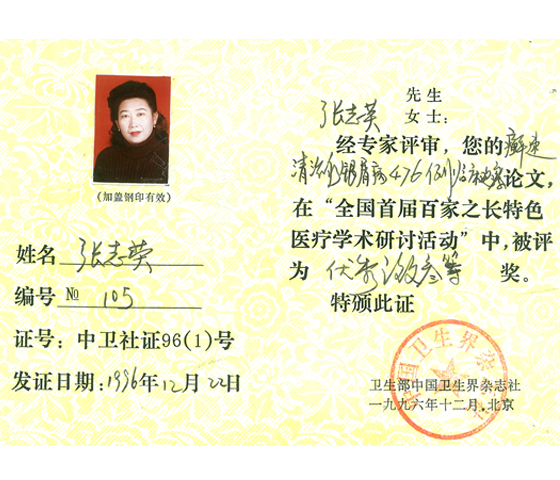 (加盖钢印有效)
姓名 张志荣
编号 № 105
证号：中卫社证96(1)号
发证日期：1996年12月22日
先生
张志荣 女士：
经专家评审，您的癣速
清治疗银屑病476例临床观察论文，
在“全国首届百家之长特色
医疗学术研讨活动”中，被评
为 优秀论文叁等 奖。
特颁此证
卫生部中国卫生界杂志社
一九九六年十二月，北京
中国卫生界杂志社